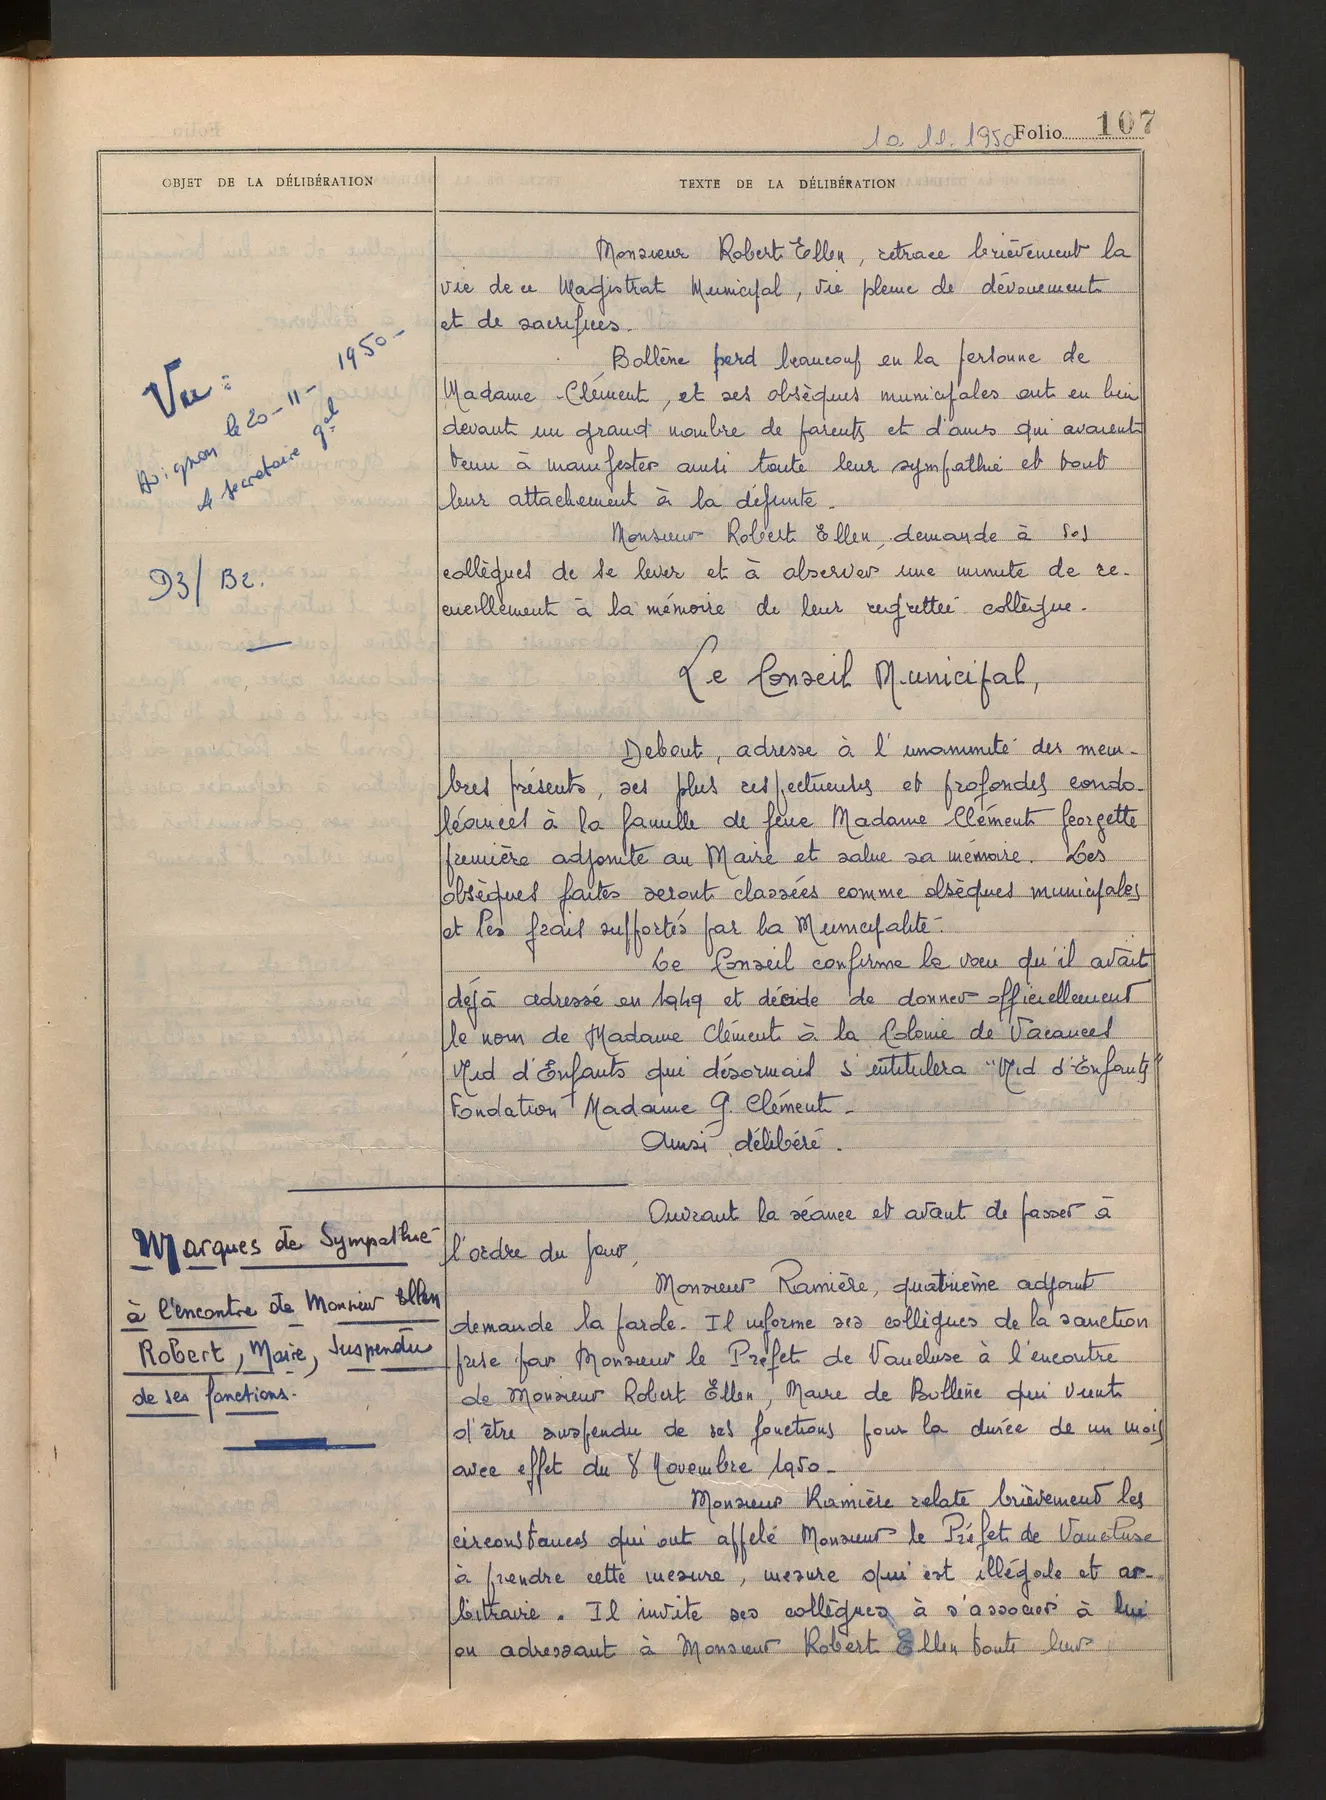 10.11.1950 Folio 107
OBJET DE LA DÉLIBÉRATION
TEXTE DE LA DÉLIBÉRATION
Monsieur Robert Ellen, retrace brièvement la
vie de ce Magistrat Municipal, vie pleine de dévouement
et de sacrifices.
Bollène perd beaucoup en la personne de
Madame Clément, et ses obsèques municipales ont eu lieu
devant un grand nombre de parents et d'amis qui avaient
tenu à manifester ainsi toute leur sympathie et tout
leur attachement à la défunte.
Monsieur Robert Ellen, demande à ses
collègues de se lever et à observer une minute de re-
cueillement à la mémoire de leur regrettée collègue.
Vu :
Avignon le 20-11-1950-
le secrétaire gal
D3/B2.
Le Conseil Municipal,
Debout, adresse à l'unanimité des mem-
bres présents, ses plus respectueuses et profondes condo-
léances à la famille de feue Madame Clément Georgette
première adjointe au Maire et salue sa mémoire. Les
obsèques faites seront classées comme obsèques municipales
et les frais supportés par la Municipalité.
Le Conseil confirme le vœu qu'il avait
déjà adressé en 1949 et décide de donner officiellement
le nom de Madame Clément à la Colonie de Vacances
Nid d'Enfants qui désormais s'intitulera "Nid d'Enfants"
Fondation Madame G. Clément.
Ainsi délibéré.
Marques de Sympathie
à l'encontre de Monsieur Ellen
Robert, Maire, Suspendu
de ses fonctions.
Ouvrant la séance et avant de passer à
l'ordre du jour,
Monsieur Ramière, quatrième adjoint
demande la parole. Il informe ses collègues de la sanction
prise par Monsieur le Préfet de Vaucluse à l'encontre
de Monsieur Robert Ellen, Maire de Bollène qui vient
d'être suspendu de ses fonctions pour la durée de un mois
avec effet du 8 Novembre 1950.
Monsieur Ramière relate brièvement les
circonstances qui ont appelé Monsieur le Préfet de Vaucluse
à prendre cette mesure, mesure qui est illégale et ar-
bitraire. Il invite ses collègues à s'associer à lui
en adressant à Monsieur Robert Ellen toute leur